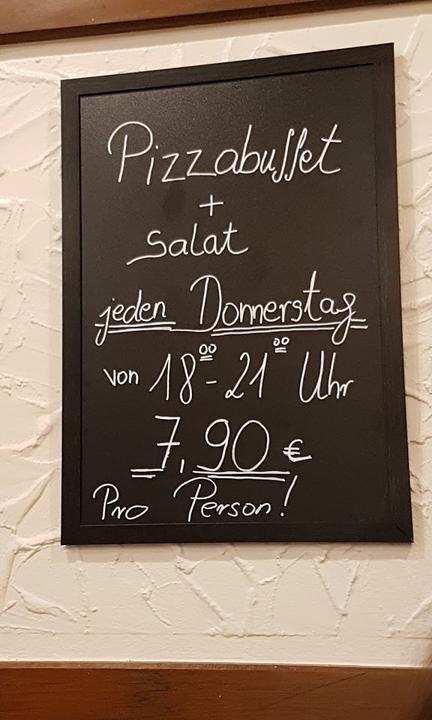 Pizzabuffet
+
Salat
jeden Donnerstag
von 18⁰⁰ - 21⁰⁰ Uhr
7,90 €
Pro Person!